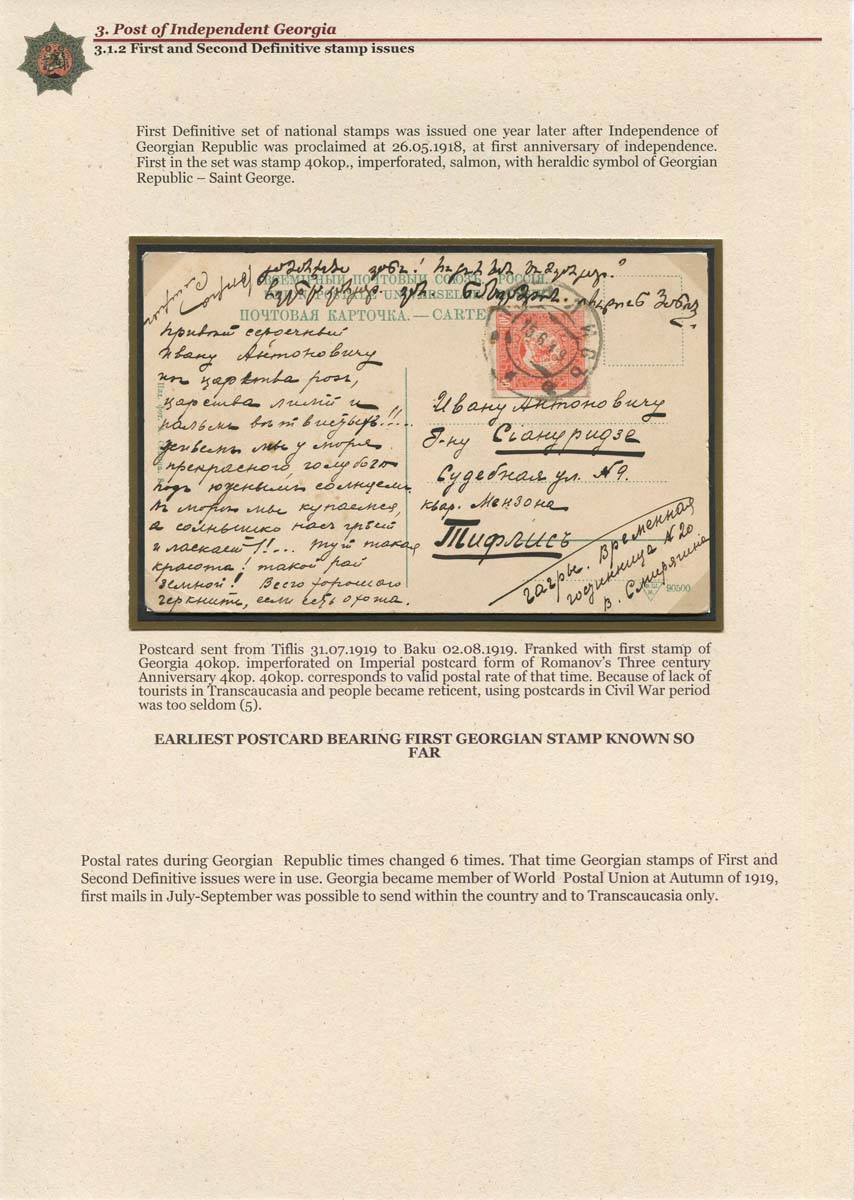 3. Post of Independent Georgia
3.1.2 First and Second Definitive stamp issues
First Definitive set of national stamps was issued one year later after Independence of
Georgian Republic was proclaimed at 26.05.1918, at first anniversary of independence.
First in the set was stamp 40kop., imperforated, salmon, with heraldic symbol of Georgian
Republic – Saint George.
ВСЕМІРНЫЙ ПОЧТОВЫЙ СОЮЗЪ. РОССІЯ.
UNION POSTALE UNIVERSELLE
ПОЧТОВАЯ КАРТОЧКА. — CARTE
Привет сердечный
Ивану Антоновичу
из царства роз,
царства лилий и
пальм
живем мы у моря
прекрасного голубого
под южнымъ солнцем.
В море мы купаемся,
а солнышко насъ греет
и ласкает!!... Тут такая
красота! такой рай
земной! Всего хорошего
черкнить, если есть охота.
Ивану Антоновичу
Г-ну
Судебная ул. №9.
квар. Мензона
Тифлисъ
Гагры. Временная
гостинница №20
В. Смирягина
90500
Postcard sent from Tiflis 31.07.1919 to Baku 02.08.1919. Franked with first stamp of
Georgia 40kop. imperforated on Imperial postcard form of Romanov's Three century
Anniversary 4kop. 40kop. corresponds to valid postal rate of that time. Because of lack of
tourists in Transcaucasia and people became reticent, using postcards in Civil War period
was too seldom (5).
EARLIEST POSTCARD BEARING FIRST GEORGIAN STAMP KNOWN SO
FAR
Postal rates during Georgian Republic times changed 6 times. That time Georgian stamps of First and
Second Definitive issues were in use. Georgia became member of World Postal Union at Autumn of 1919,
first mails in July-September was possible to send within the country and to Transcaucasia only.